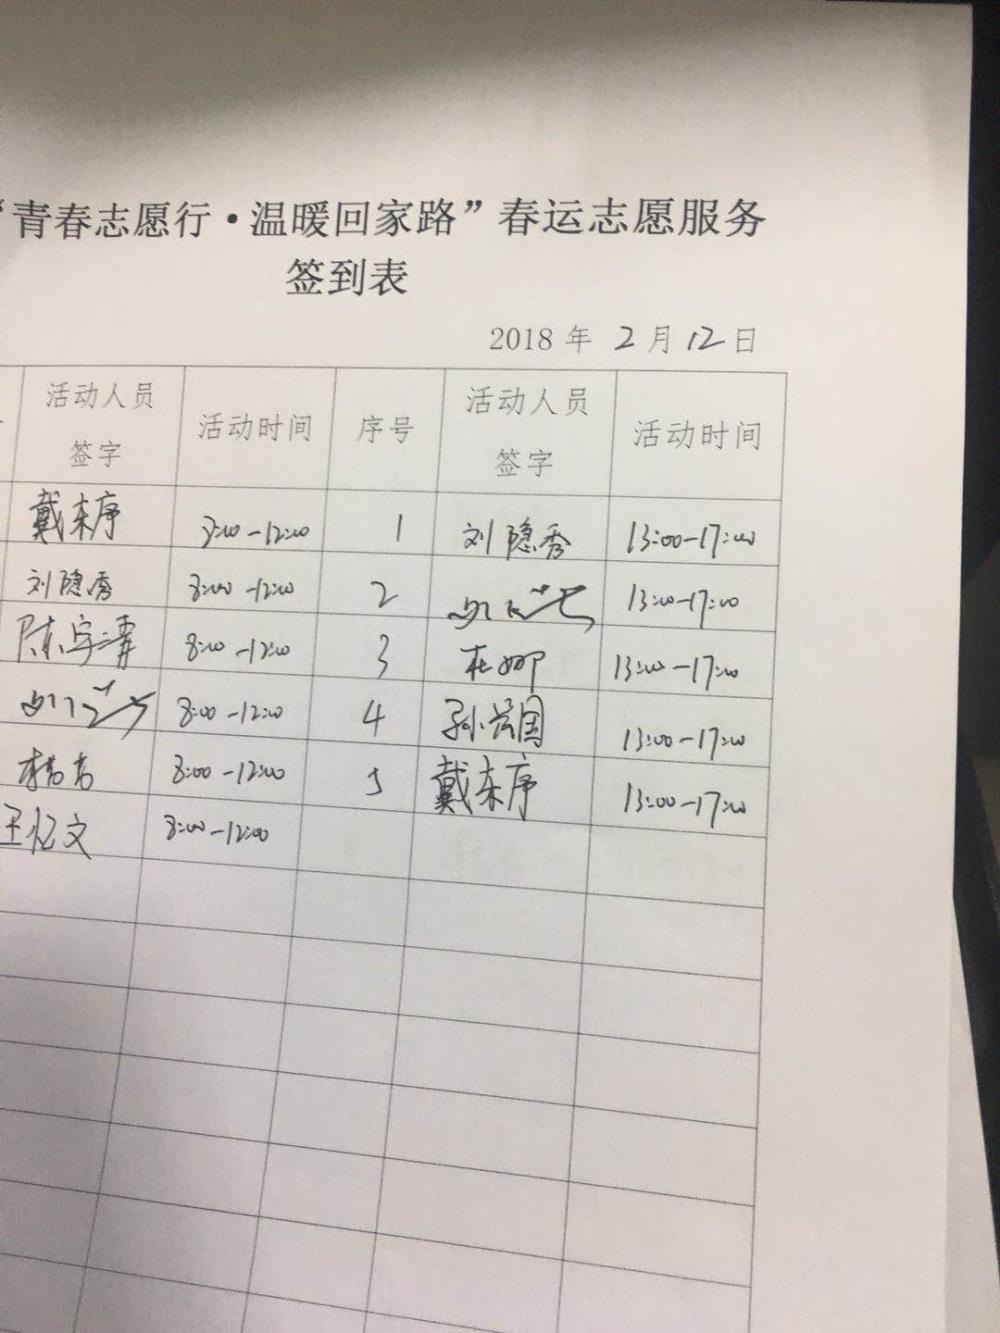 “青春志愿行·温暖回家路”春运志愿服务
签到表
2018 年 2 月 12 日
活动人员签字 活动时间 序号 活动人员签字 活动时间
戴东序 8:00-12:00 1 刘隐秀 13:00-17:00
刘隐秀 8:00-12:00 2 13:00-17:00
陈宇 8:00-12:00 3 杜娜 13:00-17:00
8:00-12:00 4 孙兴国 13:00-17:00
8:00-12:00 5 戴东序 13:00-17:00
王忆文 8:00-12:00